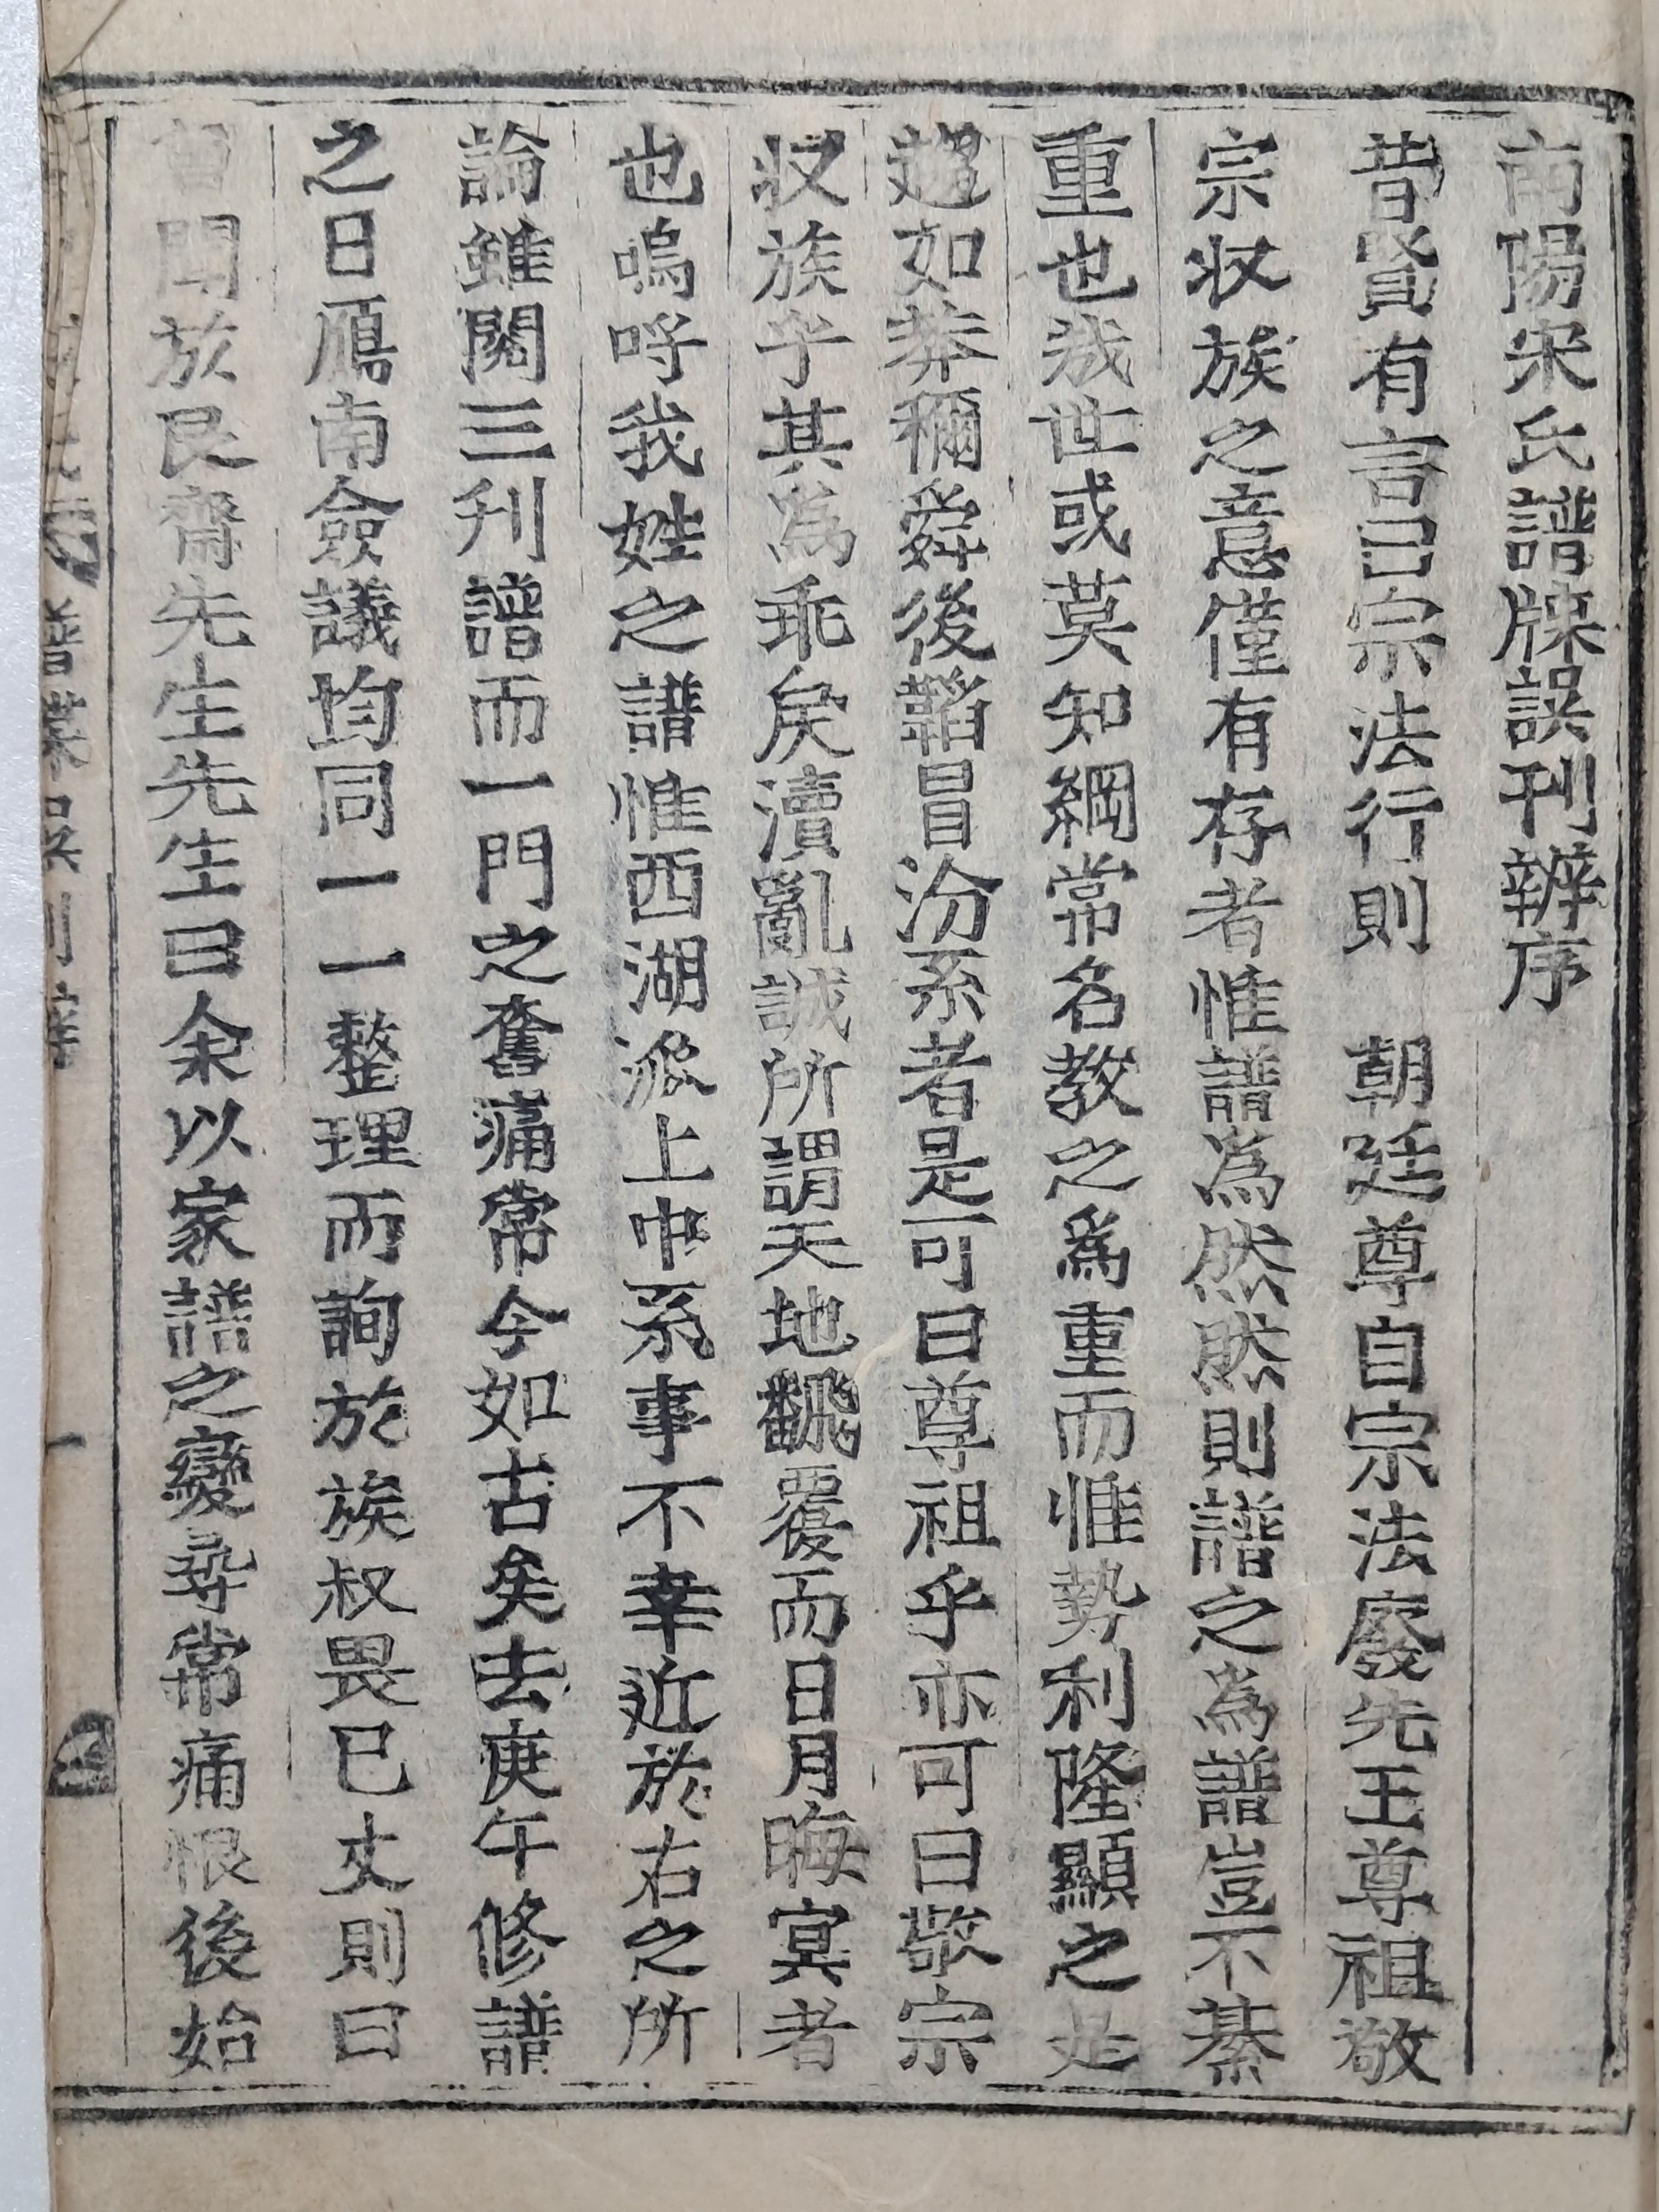 南陽宋氏譜牒誤刊辨序
昔賢有言曰宗法行則　朝廷尊自宗法廢先王尊祖敬
宗收族之意僅有存者惟譜爲然然則譜之爲譜豈不綦
重也哉世或莫知綱常名教之爲重而惟勢利隆顯之是
趨如莽稱舜後韜冒汾系者是可曰尊祖乎亦可曰敬宗
收族乎其爲乖戾瀆亂誠所謂天地飜覆而日月晦冥者
也嗚呼我姓之譜惟西湖派上中系事不幸近於右之所
論雖閱三刋譜而一門之奮痛常今如古矣去庚午修譜
之日鴈南僉議均同一一整理而詢於族叔畏已丈則曰
曾聞於艮齋先生先生曰余以家譜之變尋常痛恨後始
譜牒誤刊序　一